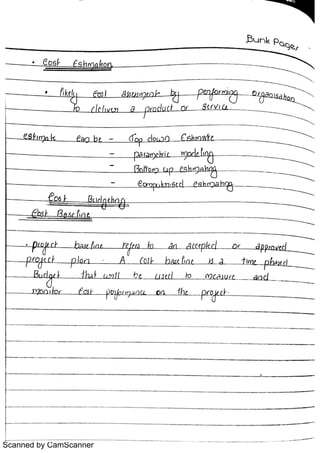 Bunk Pages
• Cost Estimation
• likely cost assessment by performing organisation
to deliver a product or service
estimate can be - Top down Estimate
- parametric modeling
- Bottom up estimating
- Computerised estimating
Cost Budgeting
Cost Baseline
• project baseline refers to an accepted or approved
project plan . A cost baseline is a time phased
Budget that will be used to measure and
monitor cost performance on the project
Scanned by CamScanner